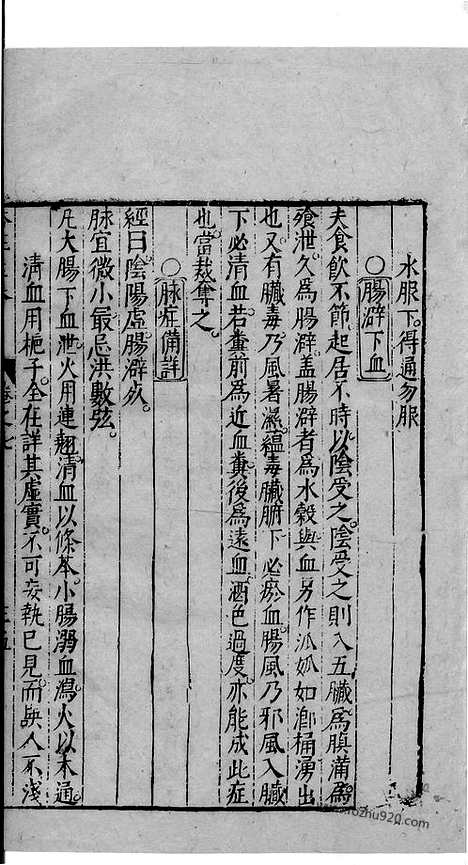 水服下得通勿服
○腸澼下血
夫食飲不節起居不時以陰受之陰受之則入五臟為䐜滿為
飱泄久為腸澼盖腸澼者為水穀與血另作泒如𣽂桶湧出
也又有臟毒乃風暑濕蘊毒臟腑下必瘀血腸風乃邪風入臟
下必清血若糞前為近血糞後為遠血酒色過度亦能成此症
也當裁奪之
○脉症備詳
經曰陰陽虛腸澼死
脉宜微小最忌洪數弦
凡大腸下血泄火用連翹清血以條芩小腸溺血瀉火以木通
清血用梔子全在詳其虛實不可妄執已見而誤人不淺
卷之七
三五
zhu920.com